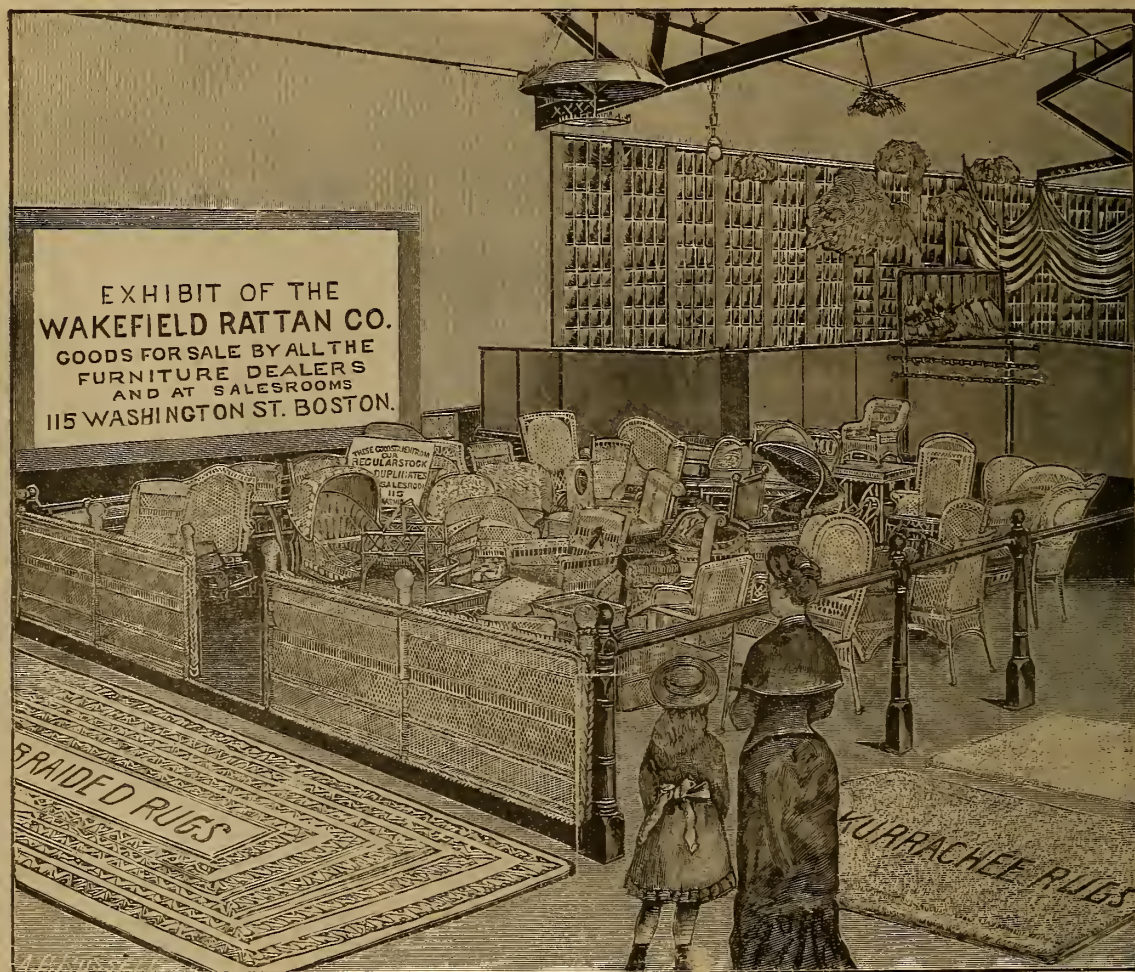 EXHIBIT OF THE
WAKEFIELD RATTAN CO.
GOODS FOR SALE BY ALL THE
FURNITURE DEALERS
AND AT SALESROOMS
115 WASHINGTON ST. BOSTON.
THESE GOODS
FROM
OUR
REGULAR STOCK
DUPLICATES
SALESROOM
115
BRAIDED RUGS
KURRACHEE RUGS